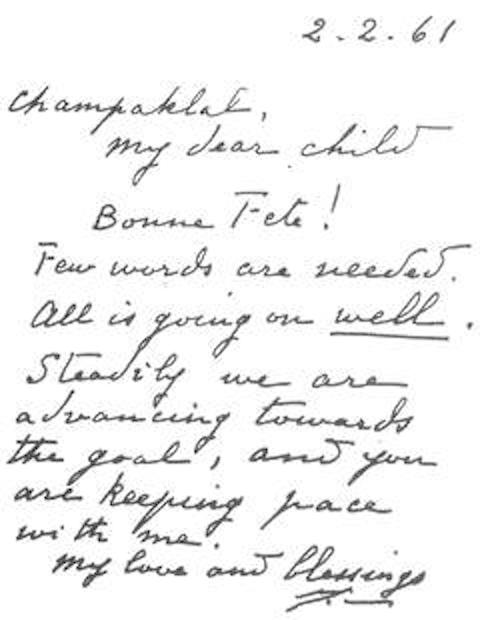 2.2.61
Champaklal,
my dear child
Bonne Fete!
Few words are needed.
All is going on well.
Steadily we are
advancing towards
the goal, and you
are keeping pace
with me.
My love and blessings